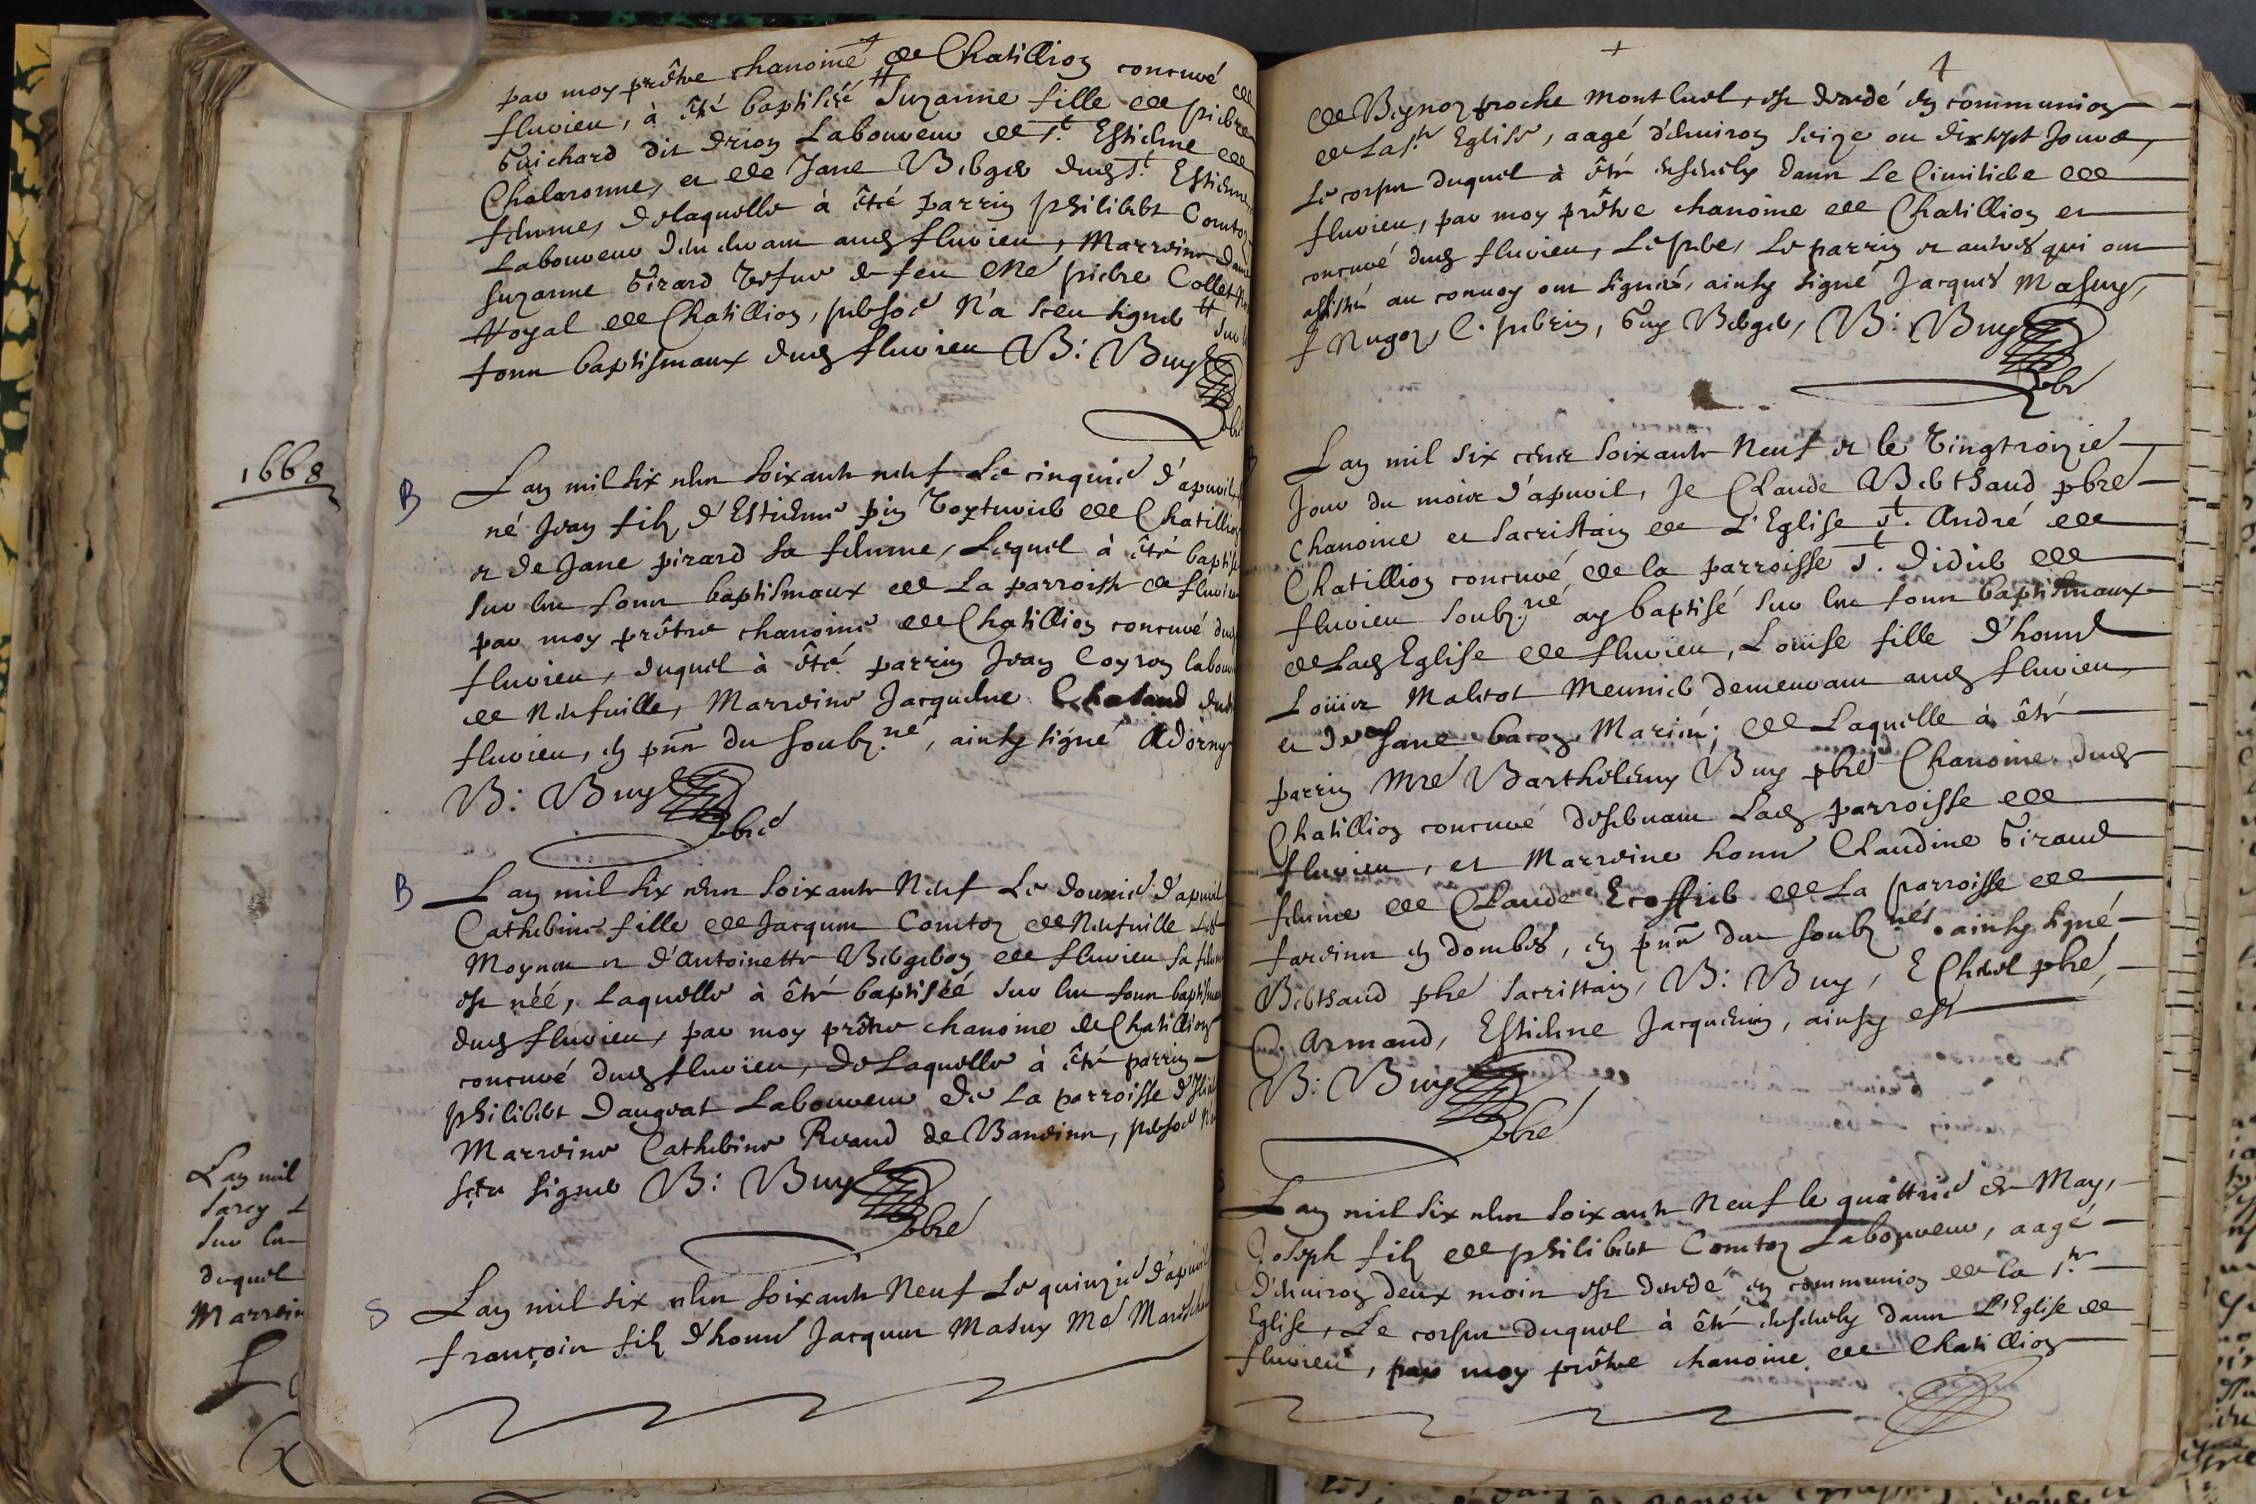 par moy prêtre chanoine de Chatillion concuré de
fluvieu, à êté baptisée # Suzanne fille de piebre
Guichard dit drion Laboureur de St. Estienne de
Chalaronne, et de Jane Bebger dud St. Estienne
femme, delaquelle à êté parrin philibebt Comton
Laboureur demeurant aud fluvieu, Marreine dame
Suzanne Girard vefve de feu Me piebre Collet
Royal de Chatillion, pebsoe n'a sceu signeb # Sur les
fonn baptismaux dud fluvieu B: Buy
pbre
1668
B
Lan mil six cens soixante neuf Le cinquie d'apvril
né Jean filz d'Estienne pin Voytuvieb de Chatillion
et de Jane pirard sa femme, Lequel à êté baptisé
sur les fonn baptismaux de La parroisse de fluvieu
par moy prêtre chanoine de Chatillion concuré dud
fluvieu, duquel à êté parrin Jean Coyron labour
de Neufville, Marreine Jacqueline Chaland dud
fluvieu, en pnce du soubzné, ainsy signé Adorny
B: Buy
pbre
B
Lan mil six cens soixante Neuf Le douzie d'apvril
Cathebine fille de Jacques Comton de Neufville Les
Moynes et d'Antoinette Bebgebon de fluvieu sa femme
est néé, Laquelle à êté baptiséé sur les fonn baptismaux
dud fluvieu, par moy prêtre chanoine de Chatillion
concuré dud fluvieu, de Laquelle à êté parrin
philibebt Daugrat Laboureur de La parroisse d'
Marreine Cathebine Reraud de Baneins, pebsoe n'a
sceu signeb B: Buy
pbre
S
Lan mil six cens soixante Neuf Le quinzie d'apvril
françois filz d'honne Jacques Masuy Me Mareschal
4
de Beynoz proche montluel, est decedé en communion
de La ste Eglise, aagé d'environ seize ou dixsept Jours,
Le corps duquel à êté ensevely dans Le Cimitiebe de
fluvieu, par moy prêtre chanoine de Chatillion et
concuré dud fluvieu, Le pebe, Le parrin et autres qui ont
assisté au convoy ont signés, ainsy signé Jacques Masuy,
f Nugoz, C. pebrin, Guy Bebgeb, B: Buy
pbre
B
Lan mil six cens soixante Neuf et le vingtroizie
Jour du mois d'apvril, Je Claude Bebthaud pbre
Chanoine et sacristain de L'Eglise st. André de
Chatillion concuré de la parroisse st. Didieb de
fluvieu soubzné ay baptisé sur les fonn baptismaux
de Lad Eglise de fluvieu, Louïse fille d'honne
Loüis Maletot Meunieb demeurant aud fluvieu,
et de Jane bacon Mariés; de Laquelle à êté
parrin Mre Barthelemy Buy pbre Chanoine dud
Chatillion concuré desebvant Lad parroisse de
fluvieu, et Marreine honne Claudine Giraud
femme de Claude Ecoffieb de La parroisse de
fareins en dombes, en pnce des soubznés. ainsy signé
Bebthaud pbre sacristain, B: Buy, E Chevl pbre,
C. Armand, Estienne Jacquemin, ainsy est
B: Buy
pbre
S
Lan mil six cens soixante Neuf le quattrie de May,
Joseph filz de philibebt Comton Laboureur, aagé
d'environ deux mois est decedé en communion de la ste
Eglise, Le corps duquel à êté ensevely dans L'Eglise de
fluvieu, par moy prêtre chanoine de Chatillion
Lan mil
Sur les
duquel
Marrein